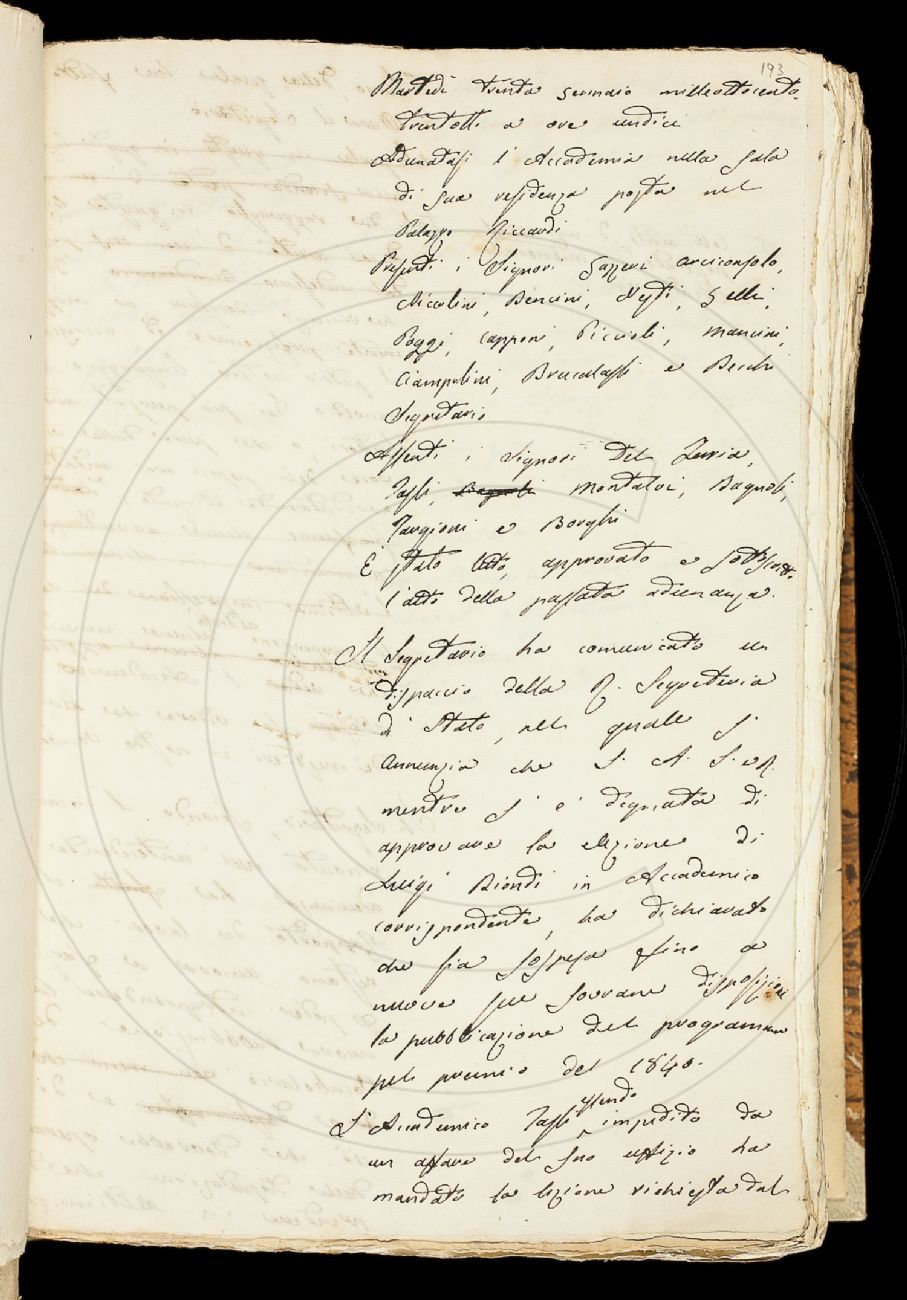 193
Martedì trenta Gennaio milleottocento-
trentotto a ore undici
Adunatasi l'Accademia nella Sala
di sua residenza posta nel
Palazzo Riccardi
Presenti i Signori Gazzeri Arciconsolo,
Niccolini, Bencini, Nesti, Gelli,
Poggi, Capponi, Piccioli, Mancini,
Ciampolini, Brucalassi e Becchi
Segretario
Assenti i Signori Del Furia,
Tassi, Bagnoli Montalvi, Bagnoli,
Targioni e Borghi
È stato letto, approvato e sottoscritto
l'atto della passata adunanza.
Il Segretario ha comunicato un
dispaccio della R. Segreteria
di Stato, nel quale s'
annunzia che S. A. I. e R.
mentre s'è degnata di
approvare la elezione di
Luigi Biondi in Accademico
corrispondente, ha dichiarato
che sia sospesa fino a
nuove sue sovrane disposizioni
la pubblicazione del programma
pel premio del 1840.
L'Accademico Tassi essendo impedito da
un affare del suo uffizio ha
mandato la lezione richiesta dal